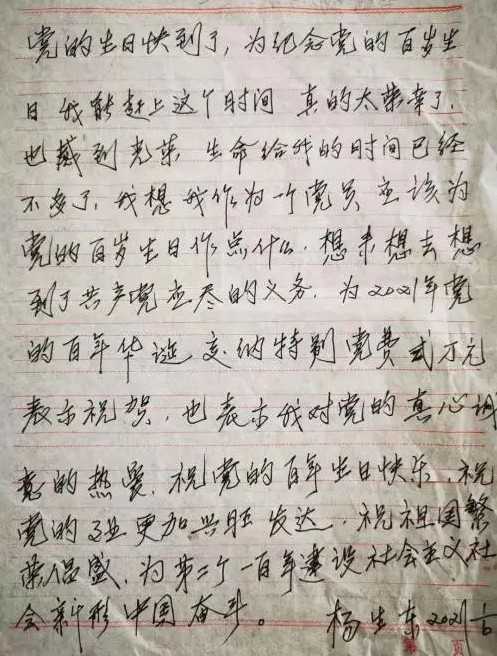 党的生日快到了，为纪念党的百岁生
日 我能赶上这个时间 真的太荣幸了.
也感到光荣 生命给我的时间已经
不多了，我想我作为一个党员 应该为
党的百岁生日作点什么. 想来想去 想
到了共产党应尽的义务. 为2021年党
的百年华诞 交纳特别党费贰万元
表示祝贺. 也表示我对党的真心诚
意的热爱. 祝党的百年生日快乐. 祝
党的 更加兴旺发达. 祝祖国繁
荣昌盛. 为第二个一百年建设社会主义社
会新 中国奋斗。 杨生东2021
页